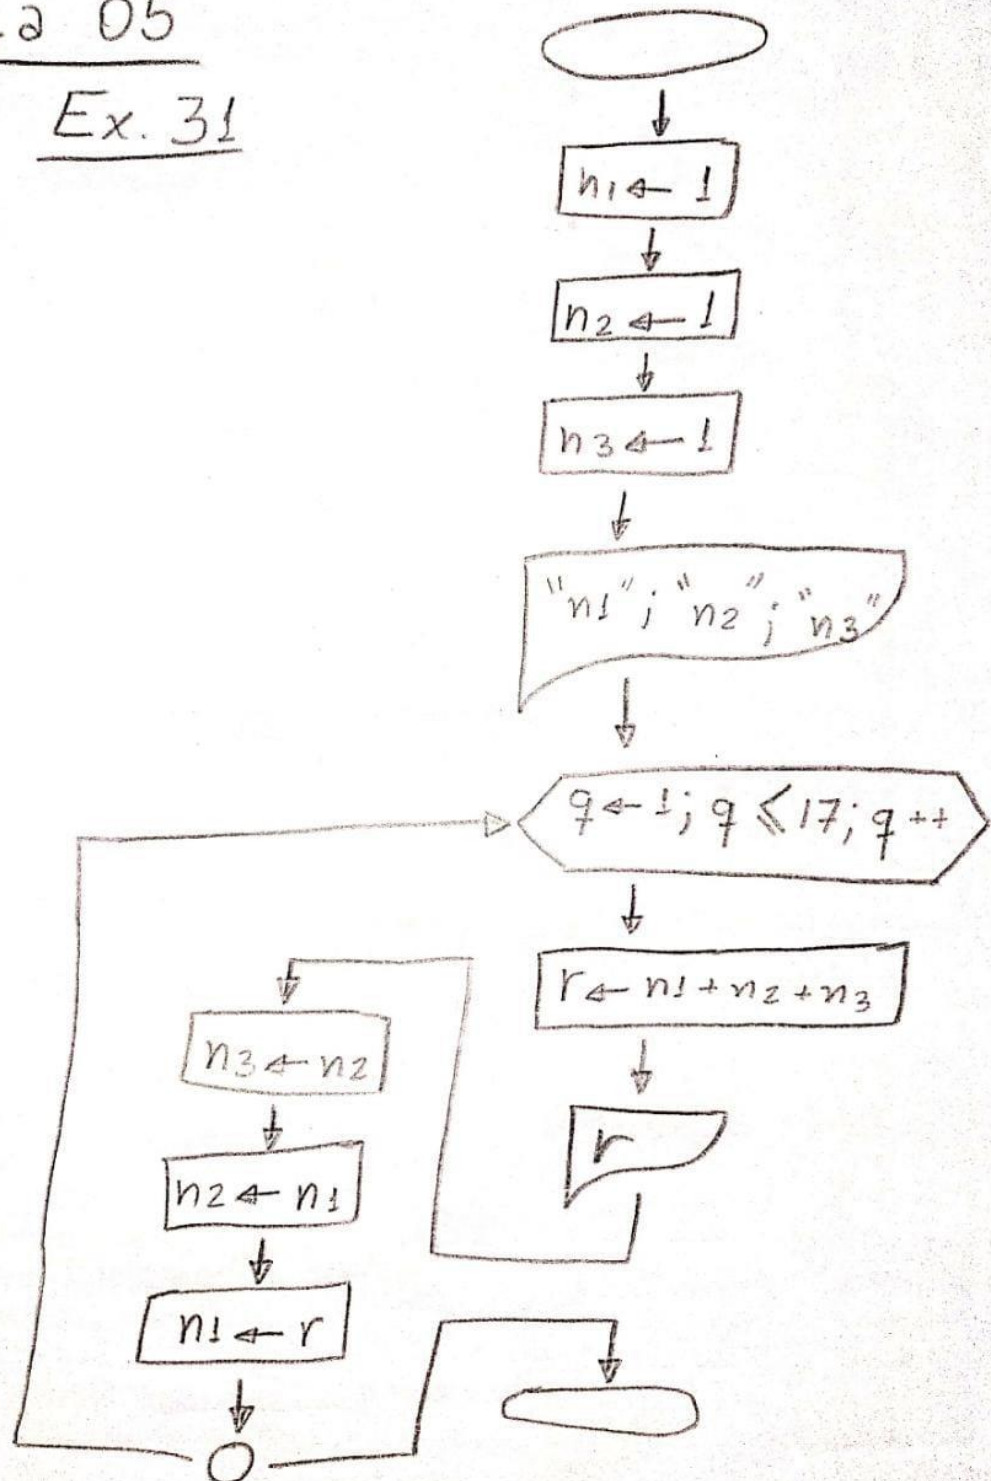 05
Ex. 31
n1 ← 1
n2 ← 1
n3 ← 1
"n1"; "n2"; "n3"
q ← 1; q ≤ 17; q ++
r ← n1 + n2 + n3
r
n3 ← n2
n2 ← n1
n1 ← r